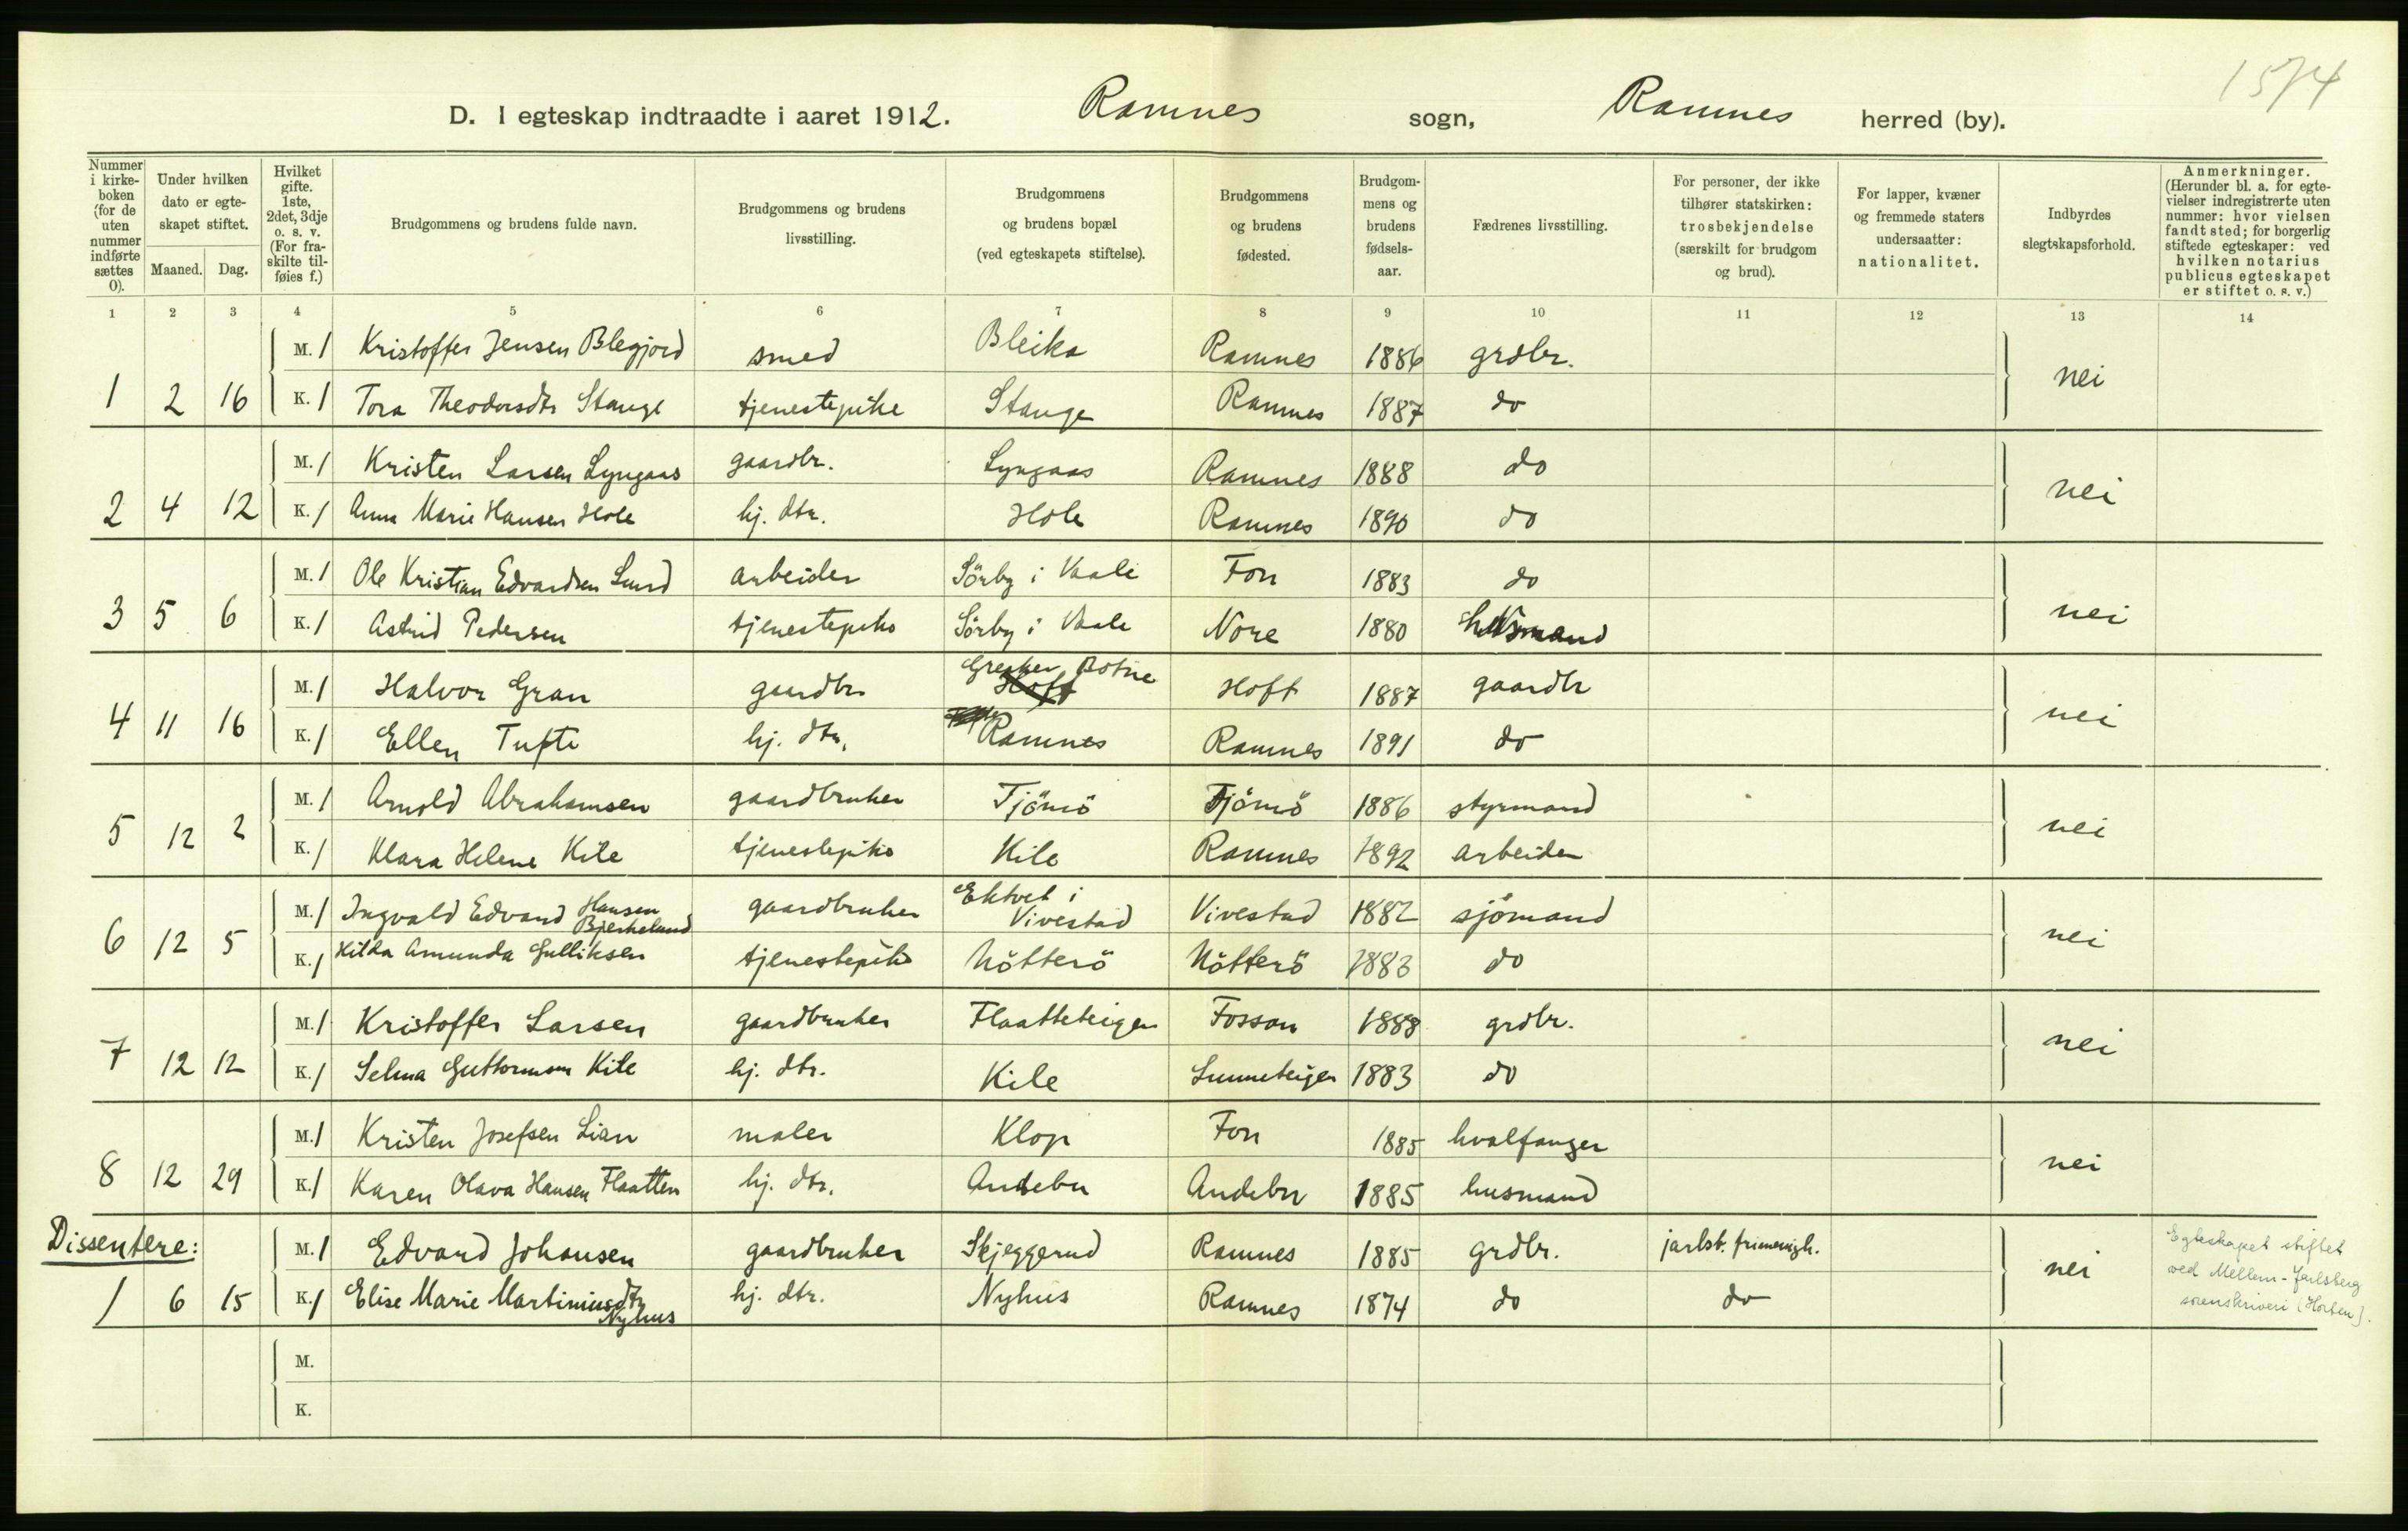 1574
D. I egteskap indtraadte i aaret 1912. Ramnes sogn, Ramnes herred (by).
Nummer i kirkeboken (for de uten nummer indførte sættes 0).
Under hvilken dato er egteskapet stiftet.
Maaned. Dag.
Hvilket gifte. 1ste, 2det, 3dje o. s. v. (For fraskilte tilføies f.)
Brudgommens og brudens fulde navn.
Brudgommens og brudens livsstilling.
Brudgommens og brudens bopæl (ved egteskapets stiftelse).
Brudgommens og brudens fødested.
Brudgommens og brudens fødselsaar.
Fædrenes livsstilling.
For personer, der ikke tilhører statskirken: trosbekjendelse (særskilt for brudgom og brud).
For lapper, kvæner og fremmede staters undersaatter: nationalitet.
Indbyrdes slegtskapsforhold.
Anmerkninger. (Herunder bl. a. for egtevielser indregistrerte uten nummer: hvor vielsen fandt sted; for borgerlig stiftede egteskaper: ved hvilken notarius publicus egteskapet er stiftet o. s. v.)
1 2 3 4 5 6 7 8 9 10 11 12 13 14
M. 1 Kristoffer Jensen Blegjord smed Bleika Ramnes 1886 grdbr.
1 2 16 K. 1 Tora Theodorsdtr Stange tjenestepike Stange Ramnes 1887 do nei
M. 1 Kristen Larsen Lyngaas gaardbr. Lyngaas Ramnes 1888 do
2 4 12 K. 1 Anna Marie Hansen Hole hj. dtr. Hole Ramnes 1890 do nei
M. 1 Ole Kristian Edvardsen Lund arbeider Sörby i Vaale Fon 1883 do
3 5 6 K. 1 Astrid Pedersen tjenestepike Sörby i Vaale Nore 1880 husmand nei
M. 1 Halvor Gran gaardbr Botne Hoff Hoff 1887 gaardbr
4 11 16 K. 1 Ellen Tufte hj. dtr. Ramnes Ramnes 1891 do nei
M. 1 Arnold Abrahamsen gaardbruker Tjömö Tjömö 1886 styrmand
5 12 2 K. 1 Klara Helene Kile tjenestepike Kile Ramnes 1892 arbeider nei
M. 1 Ingvald Edvard Hansen Bjerkelund gaardbruker Ektvet i Vivestad Vivestad 1882 sjömand
6 12 5 K. 1 Hilda Amunda Gulliksen tjenestepike Nötterö Nötterö 1883 do nei
M. 1 Kristoffer Larsen gaardbruker Flaatteteigen Fossan 1888 grdbr.
7 12 12 K. 1 Selma Guttormsen Kile hj. dtr. Kile Sunneteigen 1883 do nei
M. 1 Kristen Josefsen Lian maler Klop Fon 1885 hvalfanger
8 12 29 K. 1 Karen Olava Hansen Flaatten hj. dtr. Andebu Andebu 1885 husmand nei
Dissentere:
M. 1 Edvard Johansen gaardbruker Skjeggerud Ramnes 1885 grdbr. jarlsb. frimenigh.
1 6 15 K. 1 Elise Marie Martiniusdtr Nyhus hj. dtr. Nyhus Ramnes 1874 do do nei
Egteskapet stiftet
ved Mellem-Jarlsberg
sorenskriveri (Horten).
M.
K.